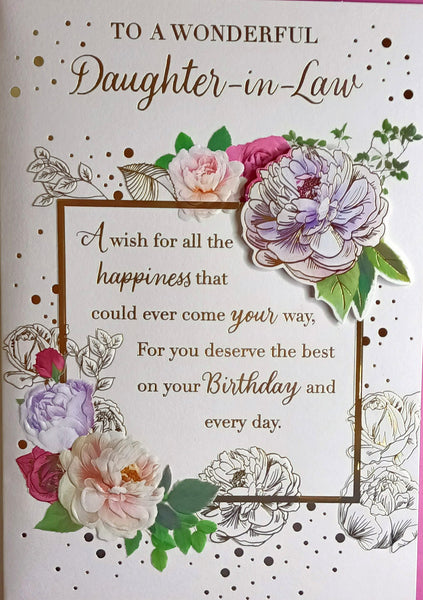 TO A WONDERFUL
Daughter-in-Law
A wish for all the
happiness that
could ever come your way,
For you deserve the best
on your Birthday and
every day.